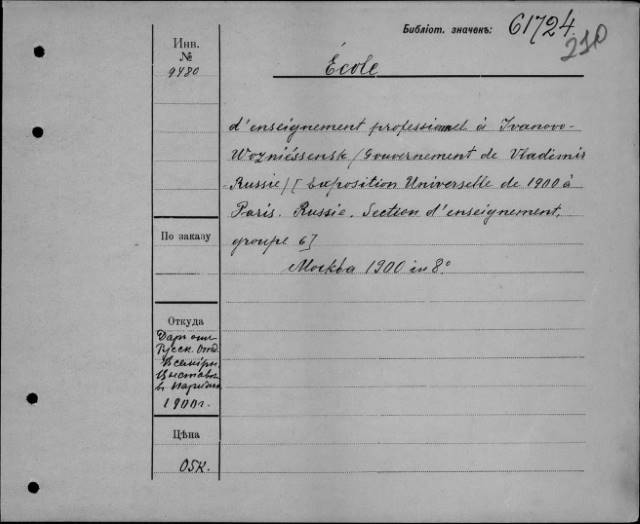 Библіот. значекъ: 61724
210
Инв.
№
9480
École
d'enseignement professionnel à Ivanovo-
Wozniéssensk (Gouvernement de Vladimir
-Russie) [Exposition Universelle de 1900 à
Paris. Russie. Section d'enseignement,
groupe 6]
Москва 1900 in 8°
По заказу
Откуда
Даръ отъ
Русск. Отд.
Всемірн.
Выставки
въ Парижѣ
1900 г.
Цѣна
05к.